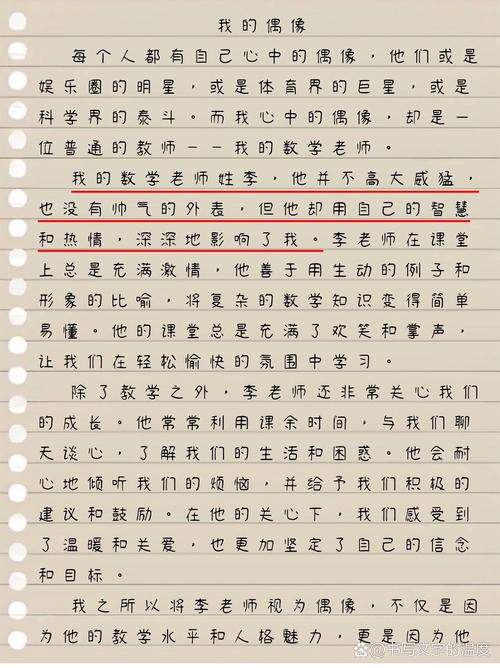 我的偶像
每个人都有自己心中的偶像，他们或是
娱乐圈的明星，或是体育界的巨星，或是
科学界的泰斗。而我心中的偶像，却是一
位普通的教师——我的数学老师。
我的数学老师姓李，他并不高大威猛，
也没有帅气的外表，但他却用自己的智慧
和热情，深深地影响了我。李老师在课堂
上总是充满激情，他善于用生动的例子和
形象的比喻，将复杂的数学知识变得简单
易懂。他的课堂总是充满了欢笑和掌声，
让我们在轻松愉快的氛围中学习。
除了教学之外，李老师还非常关心我们
的成长。他常常利用课余时间，与我们聊
天谈心，了解我们的生活和困惑。他会耐
心地倾听我们的烦恼，并给予我们积极的
建议和鼓励。在他的关心下，我们感受到
了温暖和关爱，也更加坚定了自己的信念
和目标。
我之所以将李老师视为偶像，不仅是因
为他的教学水平和人格魅力，更是因为他
@书写文学的温度